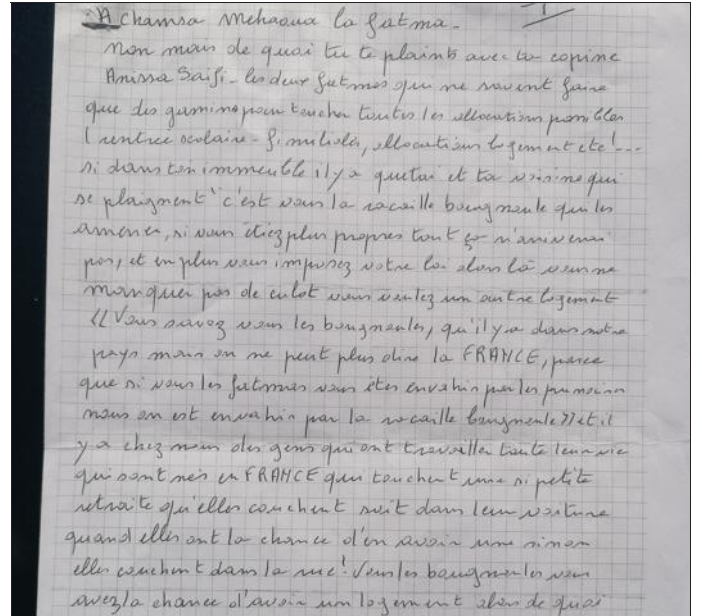 A chamsa Mehaoua la fatma -
non mais de quoi tu te plaints avec ta copine
Anissa Saifi - les deux fatmas qui ne savent faire
que des gamins pour toucher toutes les allocutions possibles
( rentrée scolaire - familiales, allocutions logement etc ! ---
si dans ton immeuble il y a que toi et ta voisine qui
se plaignent c'est vous la racaille bougnoule qui les
amener, si vous étiez plus propres tout ça n'arriverai
pas, et en plus vous imposez votre loi alors là vous ne
manquer pas de culot vous voulez un autre logement
(( Vous savez vous les bougnoules, qu'il y a dans notre
pays mais on ne peut plus dire la FRANCE, parce
que si vous les fatmas vous êtes envahis par les punaises
nous on est envahis par la racaille bougnoule )) et il
y a chez nous des gens qui ont travailler toute leur vie
qui sont nés en FRANCE qui touchent une si petite
retraite qu'elles couchent soit dans leur voiture
quand elles ont la chance d'en avoir une sinon
elles couchent dans la rue ! Vous les bougnoules vous
avez la chance d'avoir un logement alors de quoi